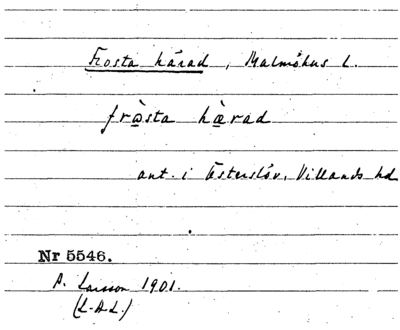 Frosta härad, Malmöhus l.
fròsta hæ̀rad
ant. i Österslöv, Villands hd
Nr 5546.
A. Larsson 1901.
(L.A.L.)